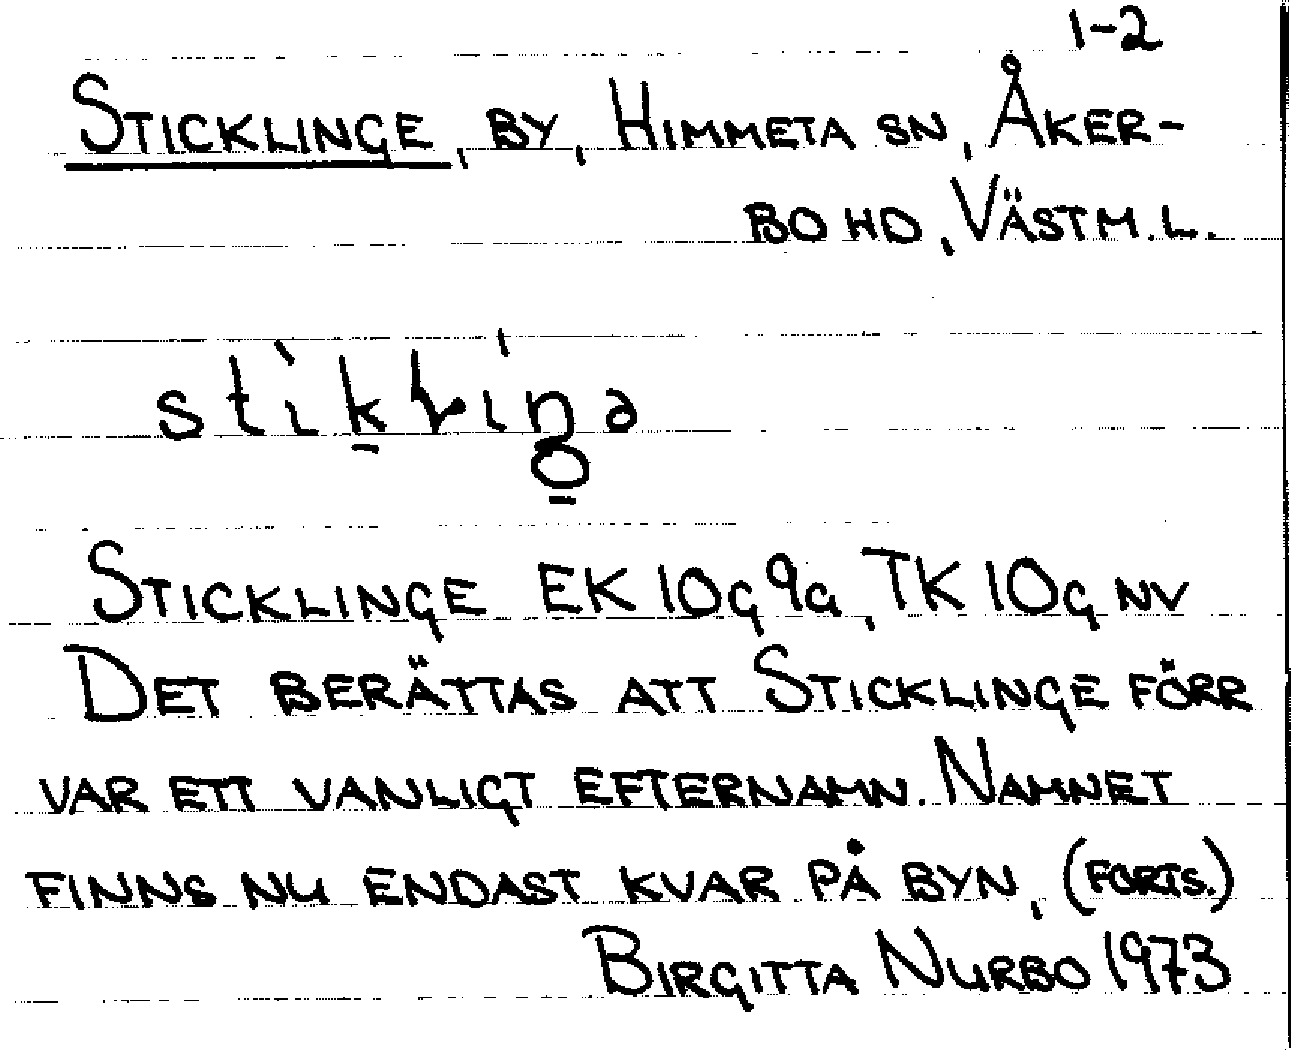 1-2
STICKLINGE, BY, HIMMETA SN, ÅKER-
BO HD, VÄSTM.L.
STICKLINGE EK 10g 9a, TK 10g NV
DET BERÄTTAS ATT STICKLINGE FÖRR
VAR ETT VANLIGT EFTERNAMN. NAMNET
FINNS NU ENDAST KVAR PÅ BYN, (FORTS.)
BIRGITTA NURBO 1973